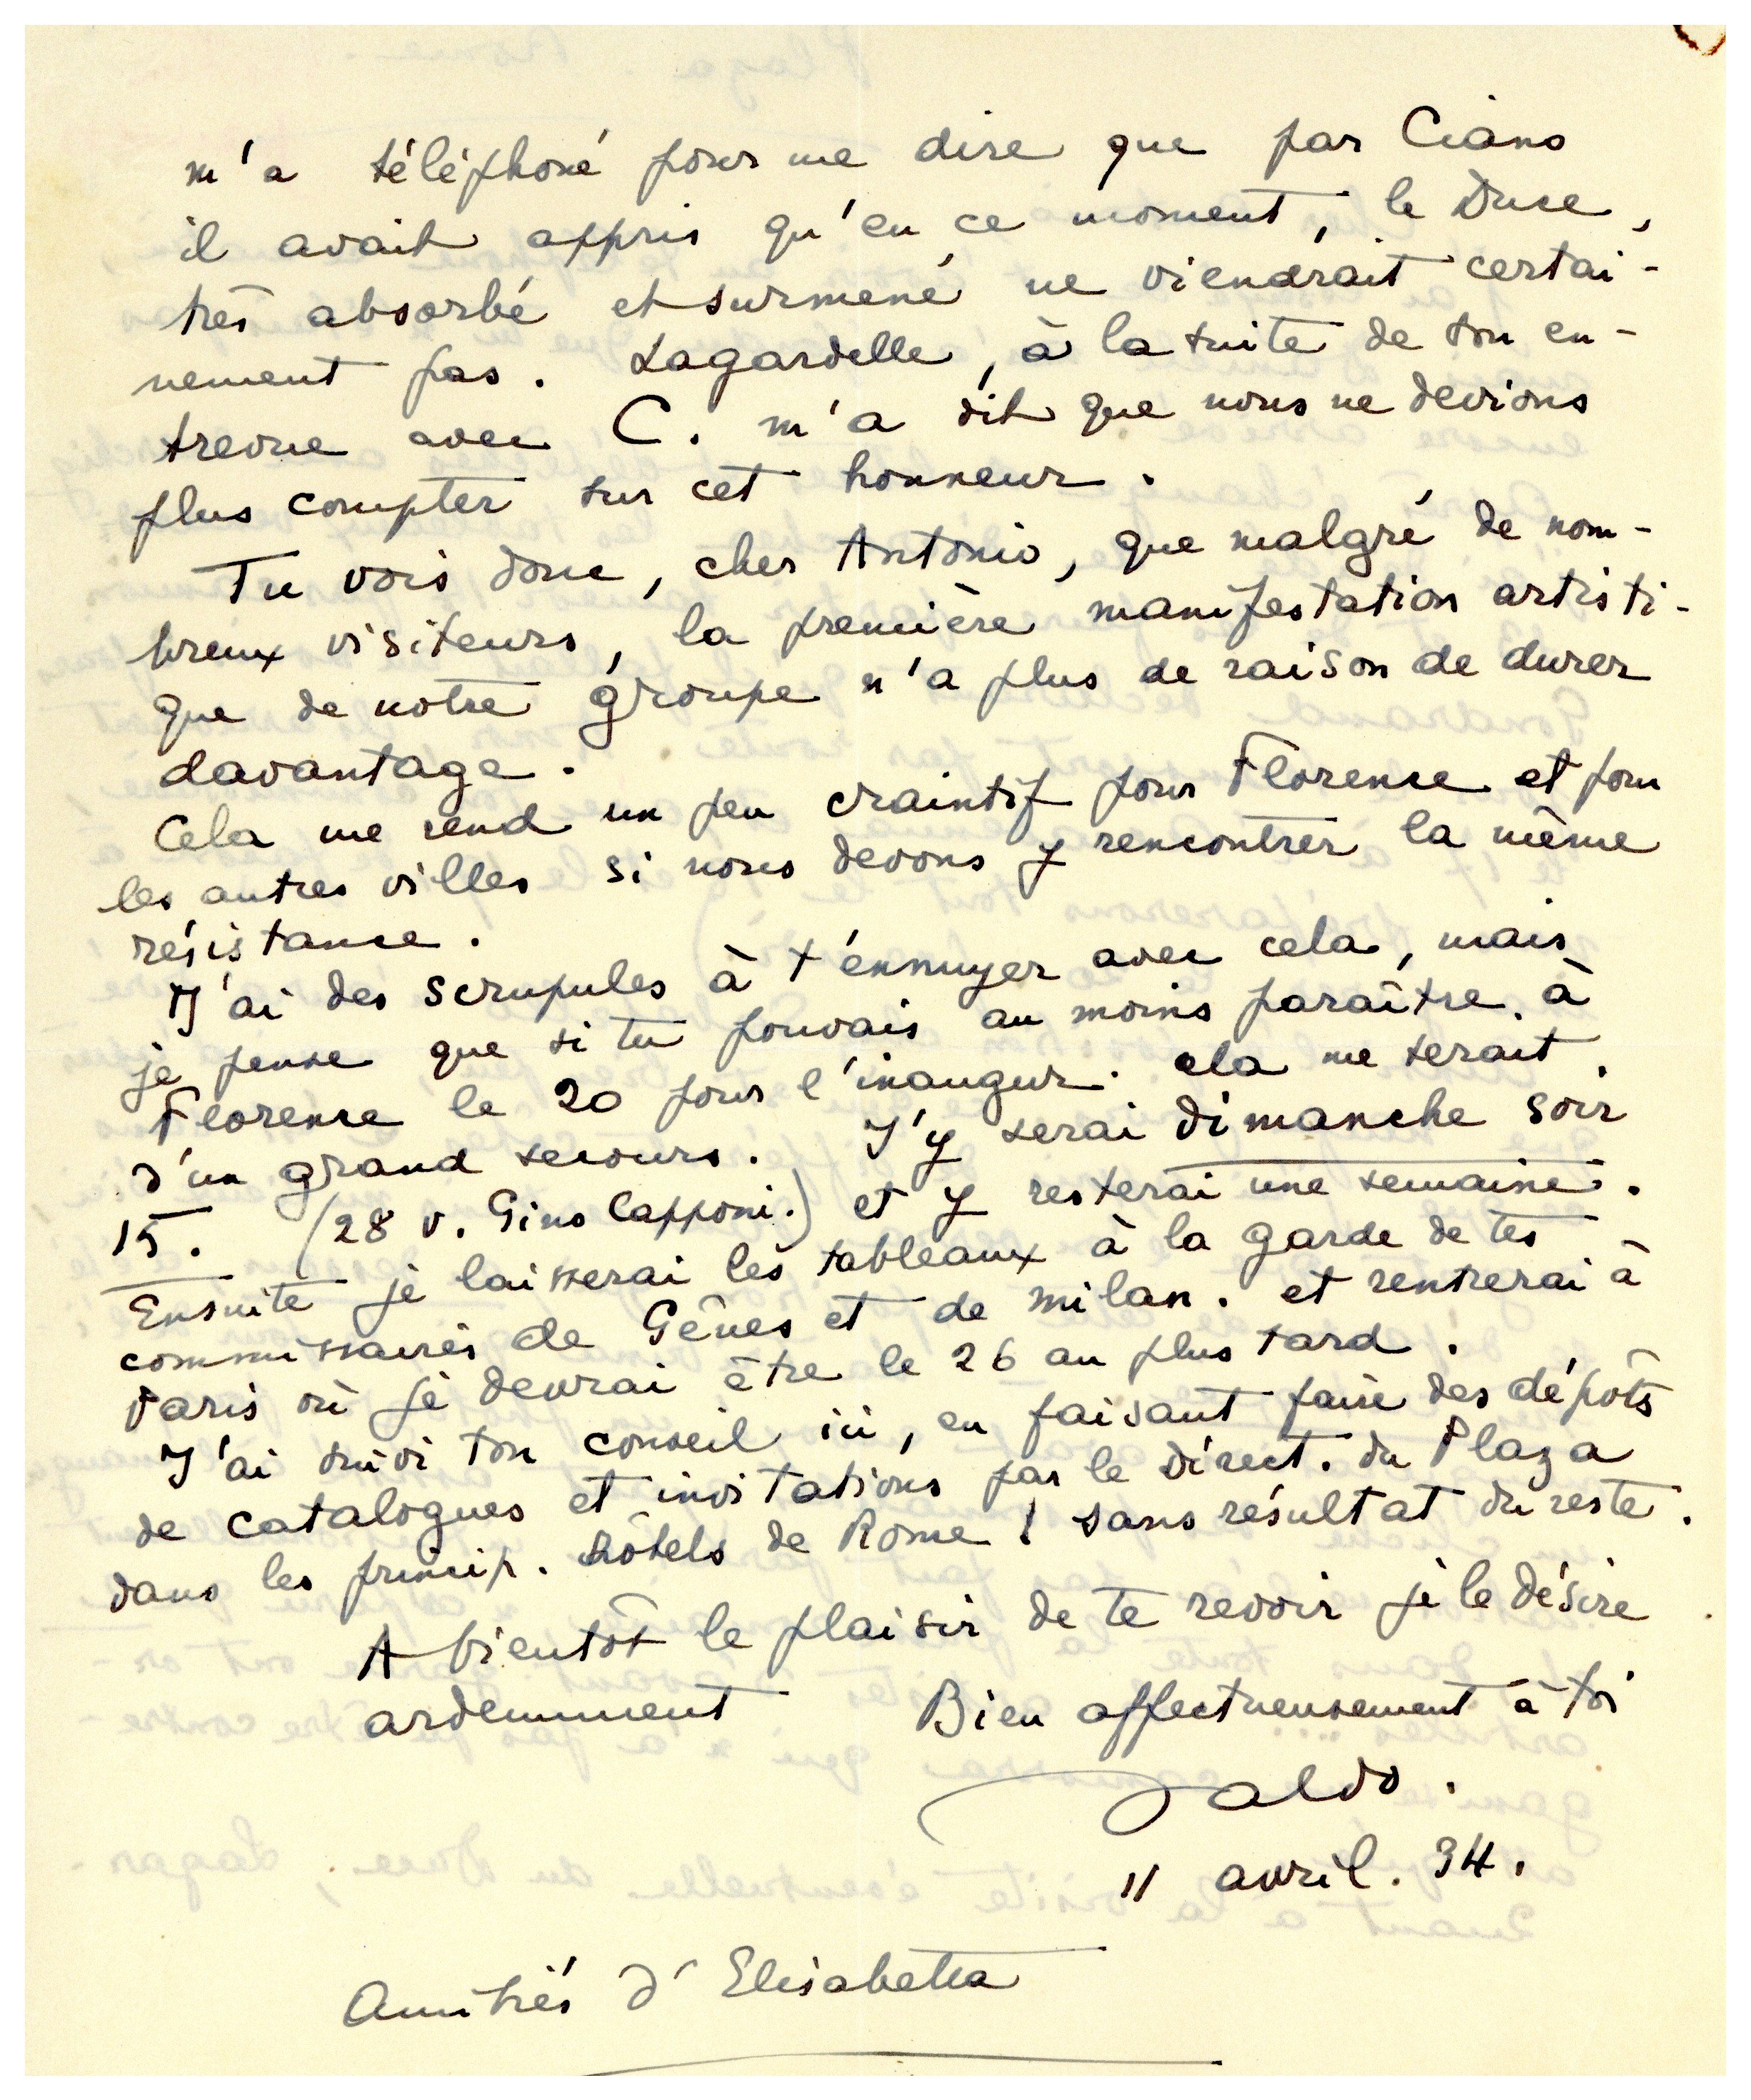 m'a téléphoné pour me dire que par Ciano
il avait appris qu'en ce moment, le Duce,
très absorbé et surmené ne viendrait certai-
nement pas. Lagardelle, à la suite de son en-
trevue avec C. m'a dit que nous ne devions
plus compter sur cet honneur.
Tu vois donc, cher Antonio, que malgré de nom-
breux visiteurs, la première manifestation artisti-
que de notre groupe n'a plus de raison de durer
davantage.
Cela me rend un peu craintif pour Florence et pour
les autres villes si nous devons y rencontrer la même
résistance.
J'ai des scrupules à t'ennuyer avec cela, mais
je pense que si tu pouvais au moins paraître à
Florence le 20 pour l'inaugur. cela me serait
d'un grand secours. J'y serai dimanche soir
15. (28 v. Gino Capponi.) et y resterai une semaine.
Ensuite je laisserai les tableaux à la garde de tes
commissaires de Gênes et de Milan. et rentrerai à
Paris où je devrai être le 26 au plus tard.
J'ai suivi ton conseil ici, en faisant faire des dépôts
de catalogues et invitations par le Direct. du Plaza
dans les princip. hôtels de Rome! sans résultat du reste.
A bientôt le plaisir de te revoir je le désire
ardemment Bien affectueusement à toi
Jaldo.
11 avril. 34.
Amitiés d'Elisabetta